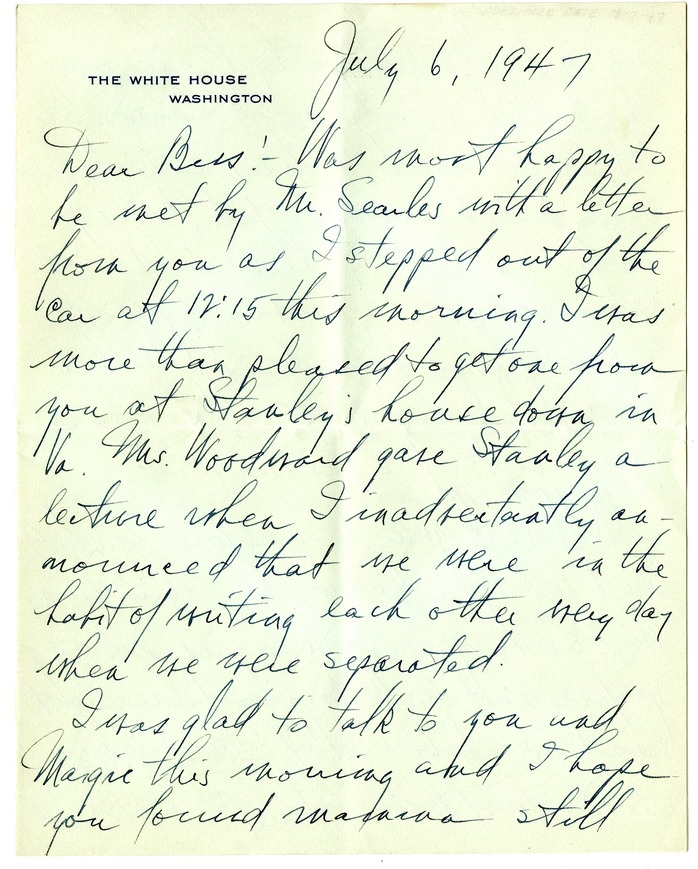 July 6, 1947
THE WHITE HOUSE
WASHINGTON
Dear Bess:- Was most happy to
be met by Mr. Searles with a letter
from you as I stepped out of the
car at 12:15 this morning. I was
more than pleased to get one from
you at Stanley's house down in
Va. Mrs. Woodward gave Stanley a
lecture when I inadvertantly an-
nounced that we were in the
habit of writing each other every day
when we were separated.
I was glad to talk to you and
Margie this morning and I hope
you found mamma still